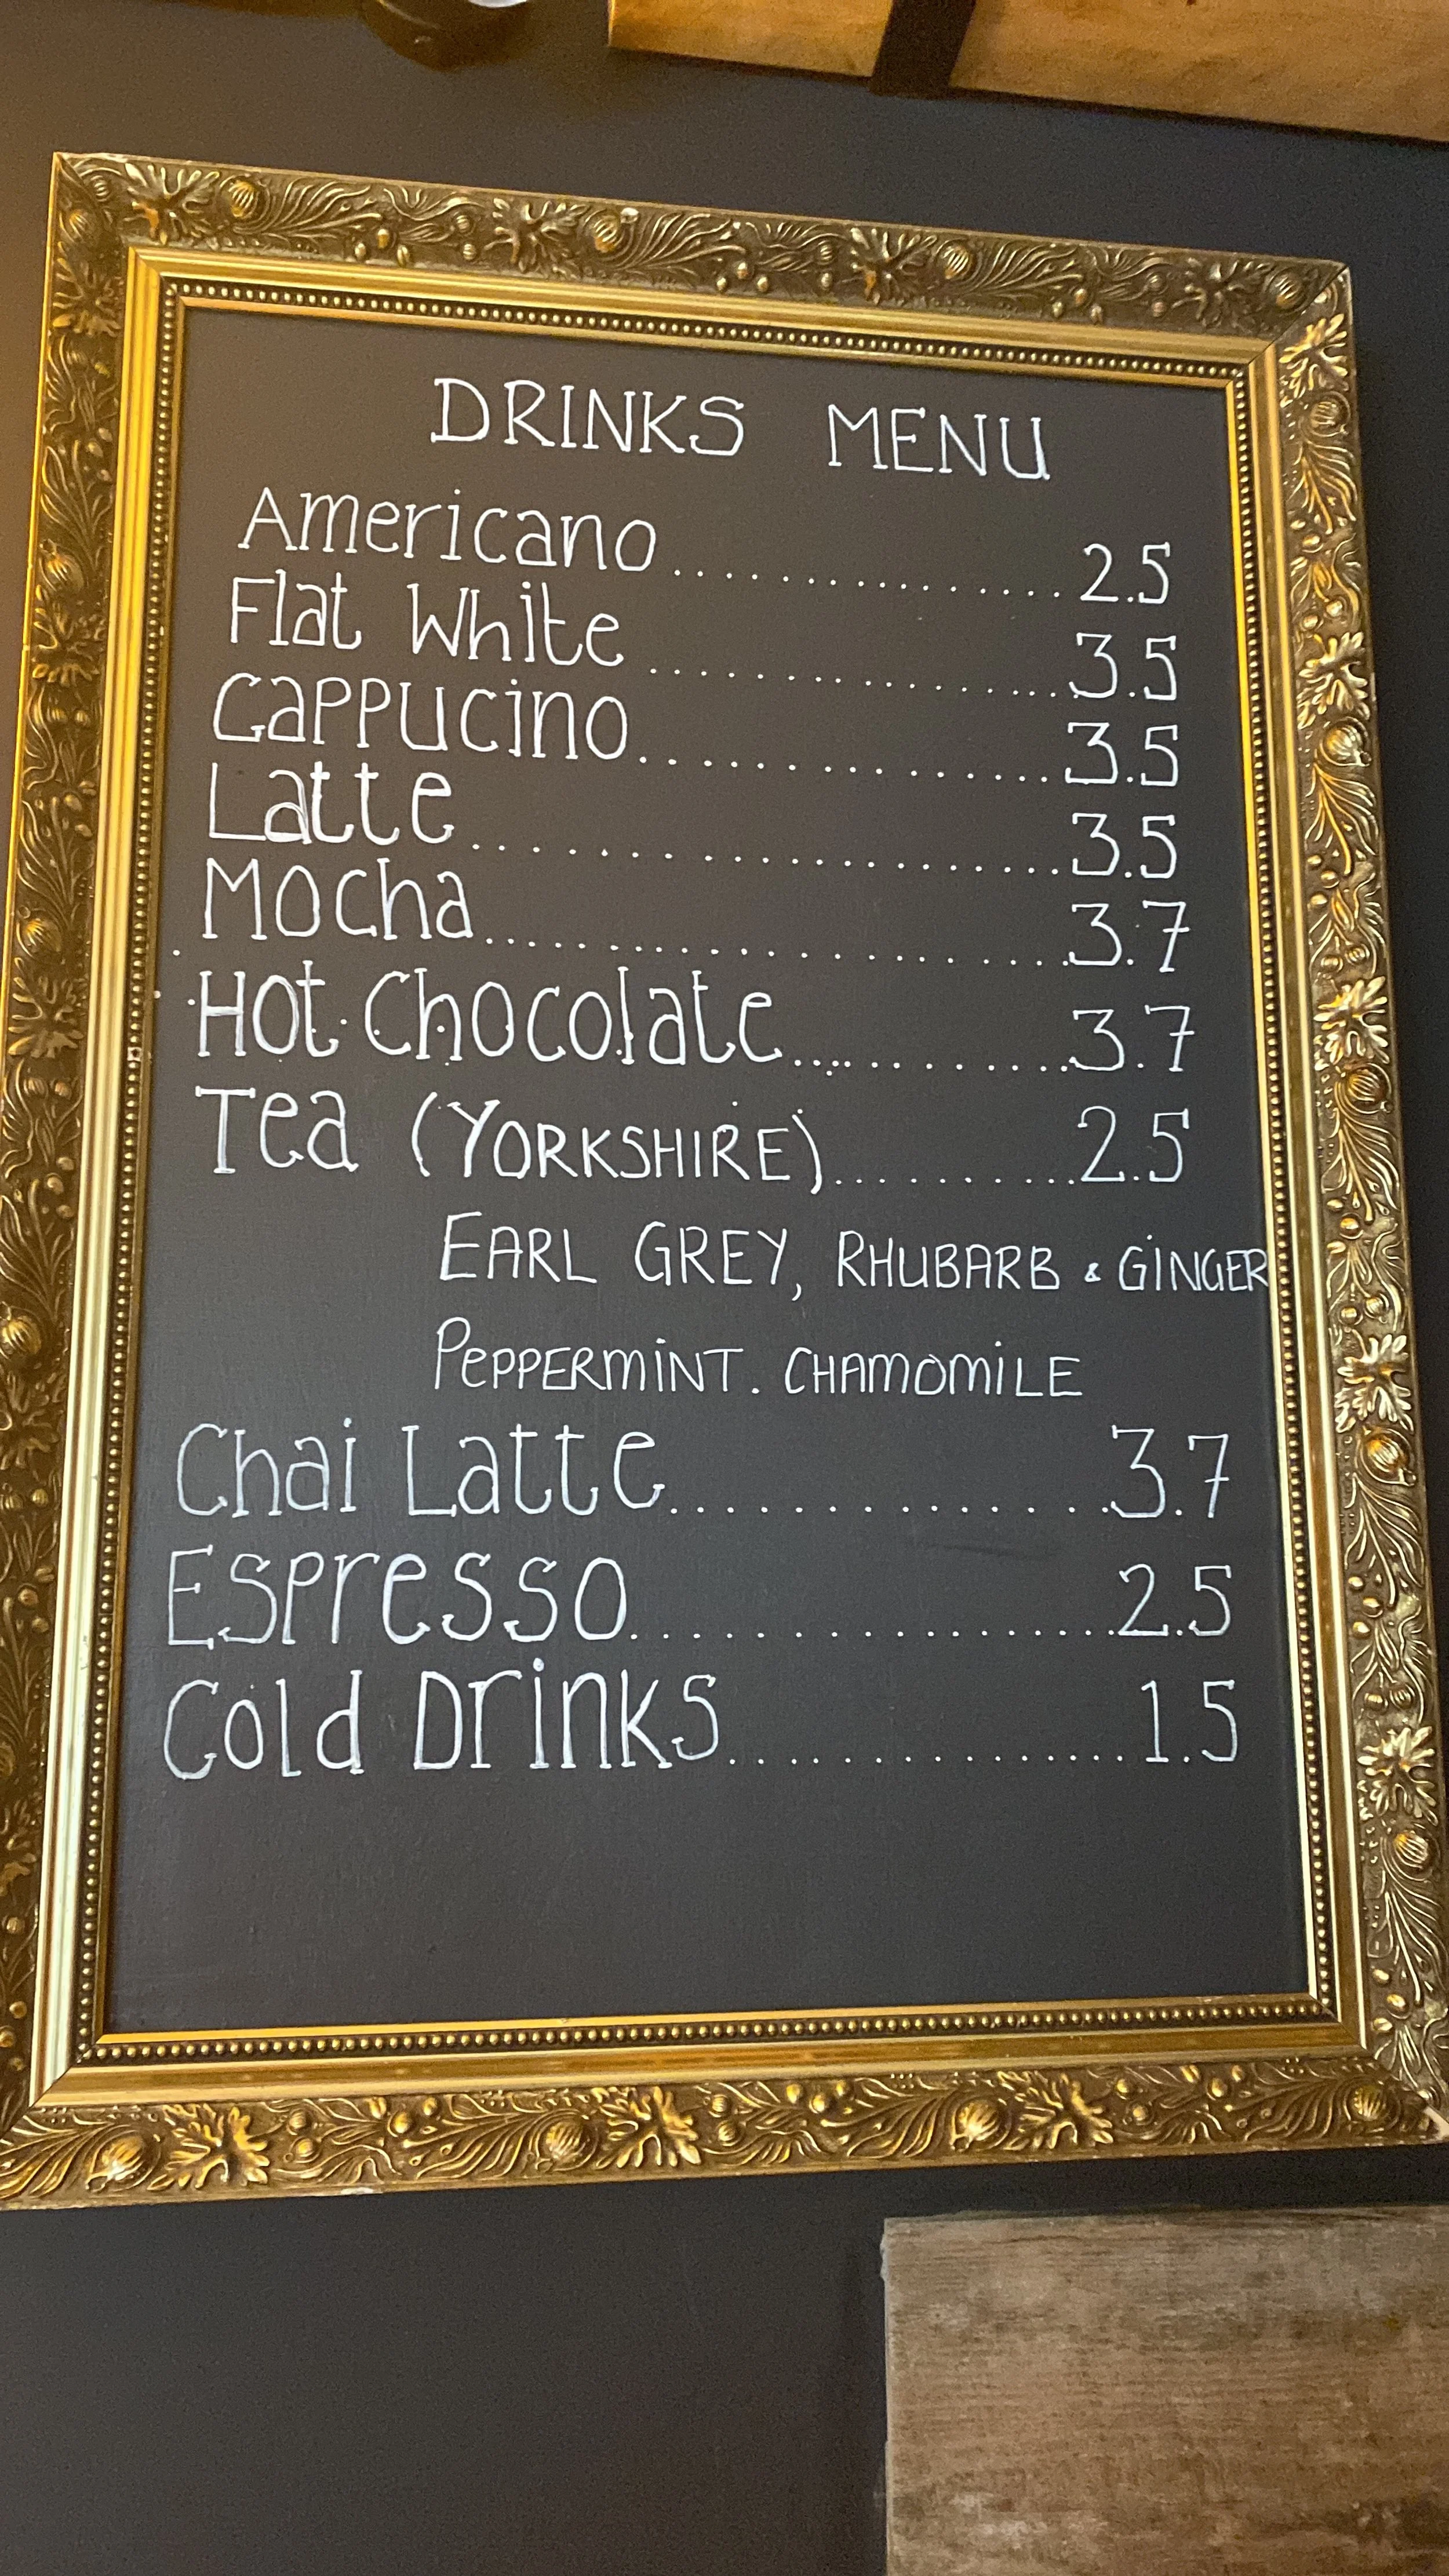 DRINKS MENU
Americano ............... 2.5
Flat White ................. 3.5
Cappucino ............... 3.5
Latte .................... 3.5
Mocha ..................... 3.7
Hot Chocolate ............. 3.7
Tea (YORKSHIRE) .......... 2.5
EARL GREY, RHUBARB & GINGER
PEPPERMINT. CHAMOMILE
Chai Latte ............... 3.7
Espresso .................. 2.5
Cold Drinks ................ 1.5